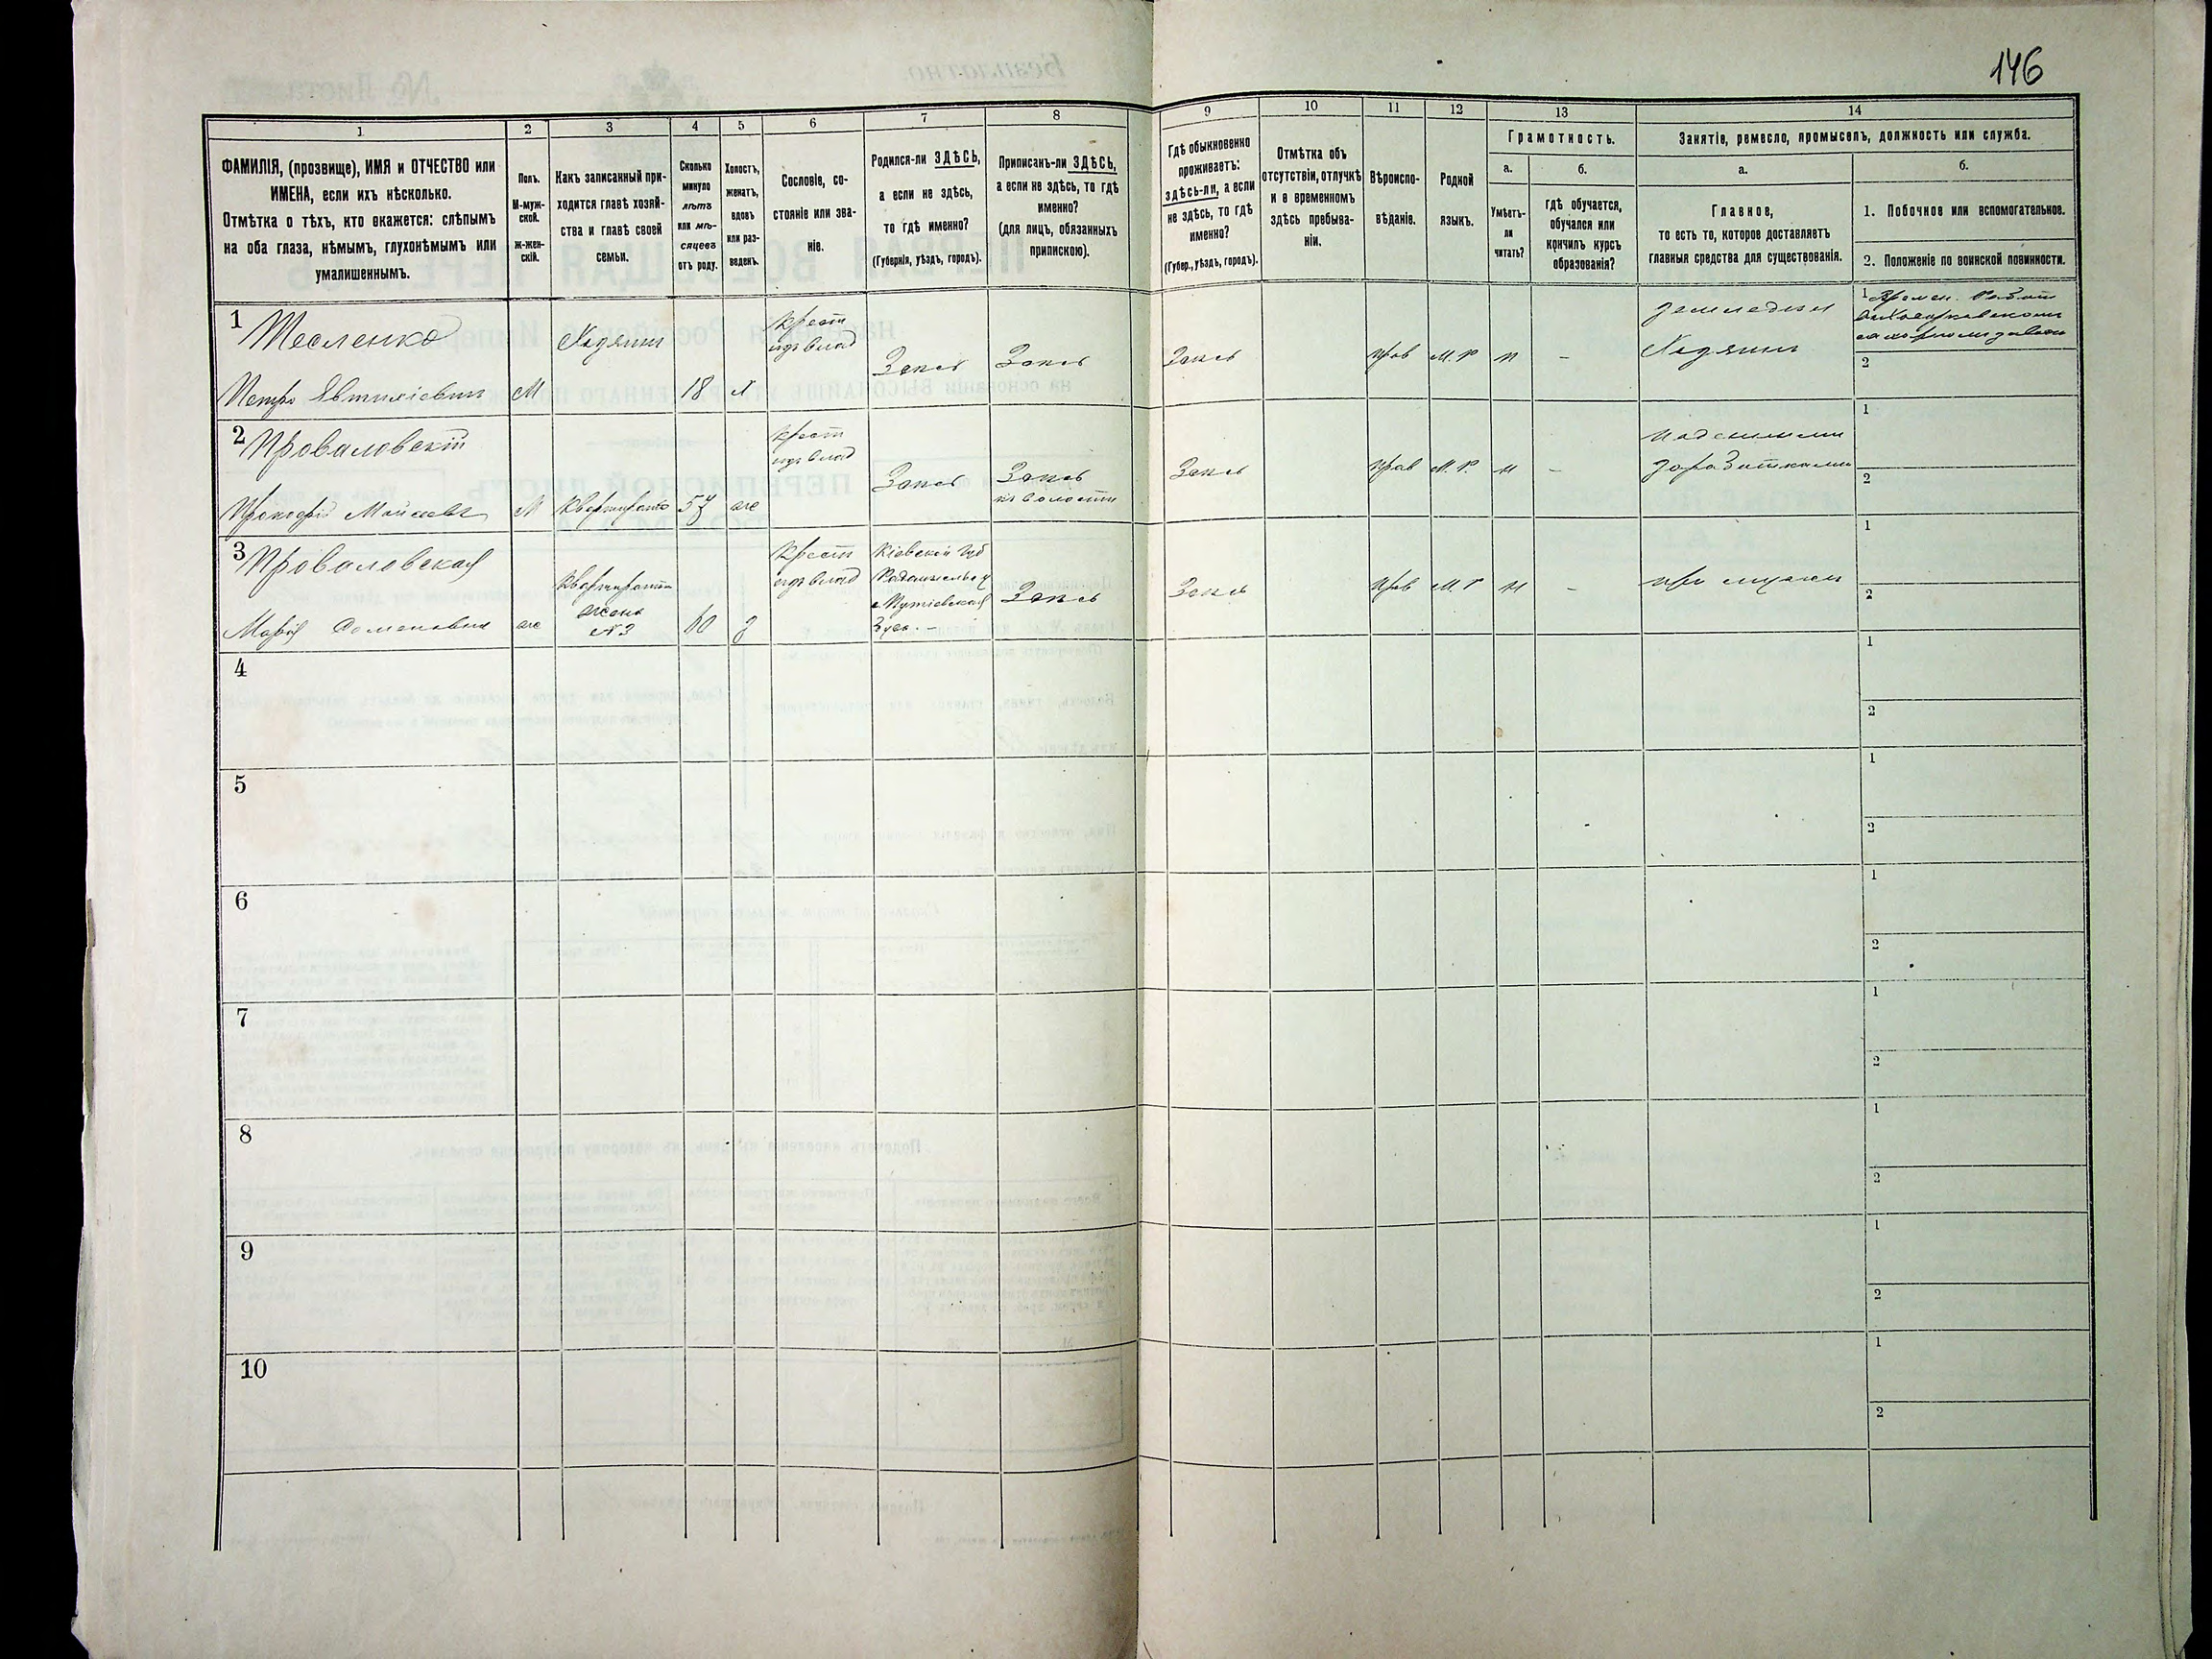 146
1
2
3
4
5
6
7
8
9
10
11
12
13
14
ФАМИЛІЯ, (прозвище), ИМЯ и ОТЧЕСТВО или
ИМЕНА, если ихъ нѣсколько.
Отмѣтка о тѣхъ, кто окажется: слѣпымъ
на оба глаза, нѣмымъ, глухонѣмымъ или
умалишеннымъ.
Полъ.
М-муж-
ской.
Ж-жен-
скій.
Какъ записанный при-
ходится главѣ хозяй-
ства и главѣ своей
семьи.
Сколько
минуло
лѣтъ
или мѣ-
сяцевъ
отъ роду.
Холостъ,
женатъ,
вдовъ
или раз-
веденъ.
Сословіе, со-
стояніе или зва-
ніе.
Родился-ли ЗДѢСЬ,
а если не здѣсь,
то гдѣ именно?
(Губернія, уѣздъ, городъ).
Приписанъ-ли ЗДѢСЬ,
а если не здѣсь, то гдѣ
именно?
(для лицъ, обязанныхъ
припискою).
Гдѣ обыкновенно
проживаетъ:
здѣсь-ли, а если
не здѣсь, то гдѣ
именно?
(Губер., уѣздъ, городъ).
Отмѣтка объ
отсутствіи, отлучкѣ
и о временномъ
здѣсь пребыва-
ніи.
Вѣроиспо-
вѣданіе.
Родной
языкъ.
Грамотность.
а.
Умѣетъ-
ли
читать?
б.
гдѣ обучается,
обучался или
кончилъ курсъ
образованія?
Занятіе, ремесло, промыселъ, должность или служба.
а.
Главное,
то есть то, которое доставляетъ
главныя средства для существованія.
б.
1. Побочное или вспомогательное.
2. Положеніе по воинской повинности.
1
Тесленко
Петро Евтихіевич
М
Хозяин
18
х
Крест
из влад
Здесь
Здесь
Здесь
Прав
М. Р
н
–
Земледел
Хозяин
1
2
2
Проваловскій
Прокофій Мойсеев
М
Квартирант
57
же
Крест
из влад
Здесь
Здесь
к волости
Здесь
Прав
М. Р.
н
–
заработками
1
2
3
Проваловская
Марія
же
Квартирант
жена
60
з
Крест
из влад
Кіевской губ
Радомысльс у
Здесь
Здесь
Прав
М. Р
н
–
при муже
1
2
4
1
2
5
1
2
6
1
2
7
1
2
8
1
2
9
1
2
10
1
2